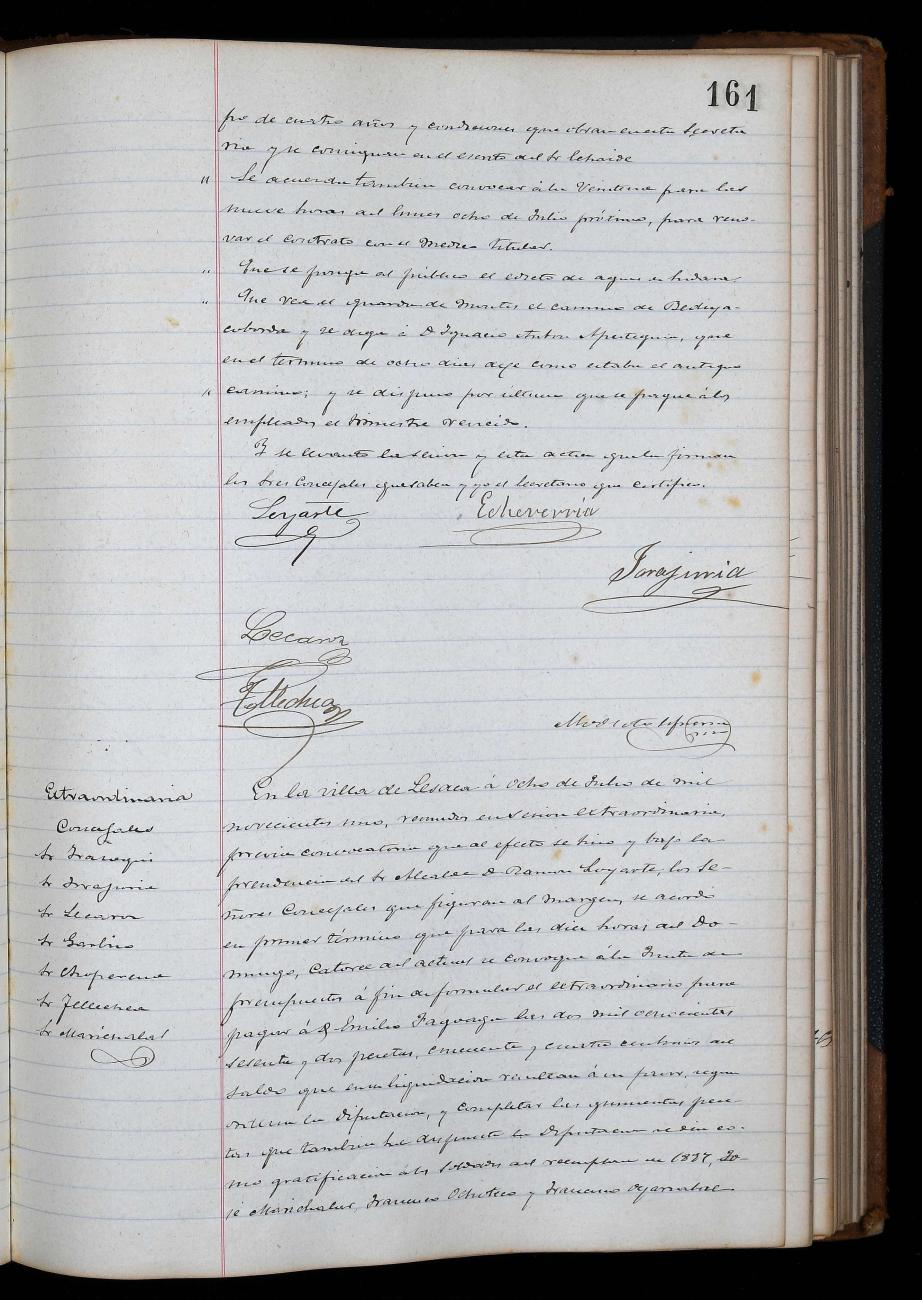 161
de cuatro años y condiciones que obran en esta Secreta
ria y se consignan en el escrito del Sr
" Se acuerda tambien convocar á la Veintena para las
nueve horas del lunes ocho de Julio próximo, para reno-
var el contrato con el Medico titular.
" Que se ponga al público el edicto de aguas
" Que vea el guarda de montes el camino de
y se diga á D Ignacio Anton Apesteguia, que
en el termino de ocho dias deje como estaba el antiguo
" camino; y se dispuso por ultimo que se pague á los
empleados el trimestre vencido.
Y se levantó la sesion y esta acta que la firman
los Sres Concejales que saben y yo el Secretario que certifico.
Loyarte
Echeverria
Irazuria
Lecaroz
Tellechea
Modesto
Extraordinaria
Concejales
Sr
Sr
Sr Lecaroz
Sr
Sr Choperena
Sr Tellechea
Sr Marichalar
En la villa de Lesaca á ocho de Julio de mil
novecientos uno, reunidos en sesion extraordinaria,
previa convocatoria que al efecto se hizo y bajo la
presidencia del Sr Alcalde D Ramon Loyarte, los Se-
ñores Concejales que figuran al margen, se acordó
en primer término que para las diez horas del Do-
mingo, catorce del actual se convoque á la Junta de
presupuestos á fin de formular el extraordinario para
pagar á D Emilio las dos mil ochocientas
sesenta y dos pesetas, cincuenta y cuatro centimos del
saldo que en su liquidacion resultan á su favor, segun
ordena la Diputacion, y completar las quinientas pese-
tas que tambien ha dispuesto la Diputacion se den co-
mo gratificacion á los soldados del reemplazo de 1897, Jo-
sé Marichalar, Francisco Ochoteco y Francisco Oyarzabal